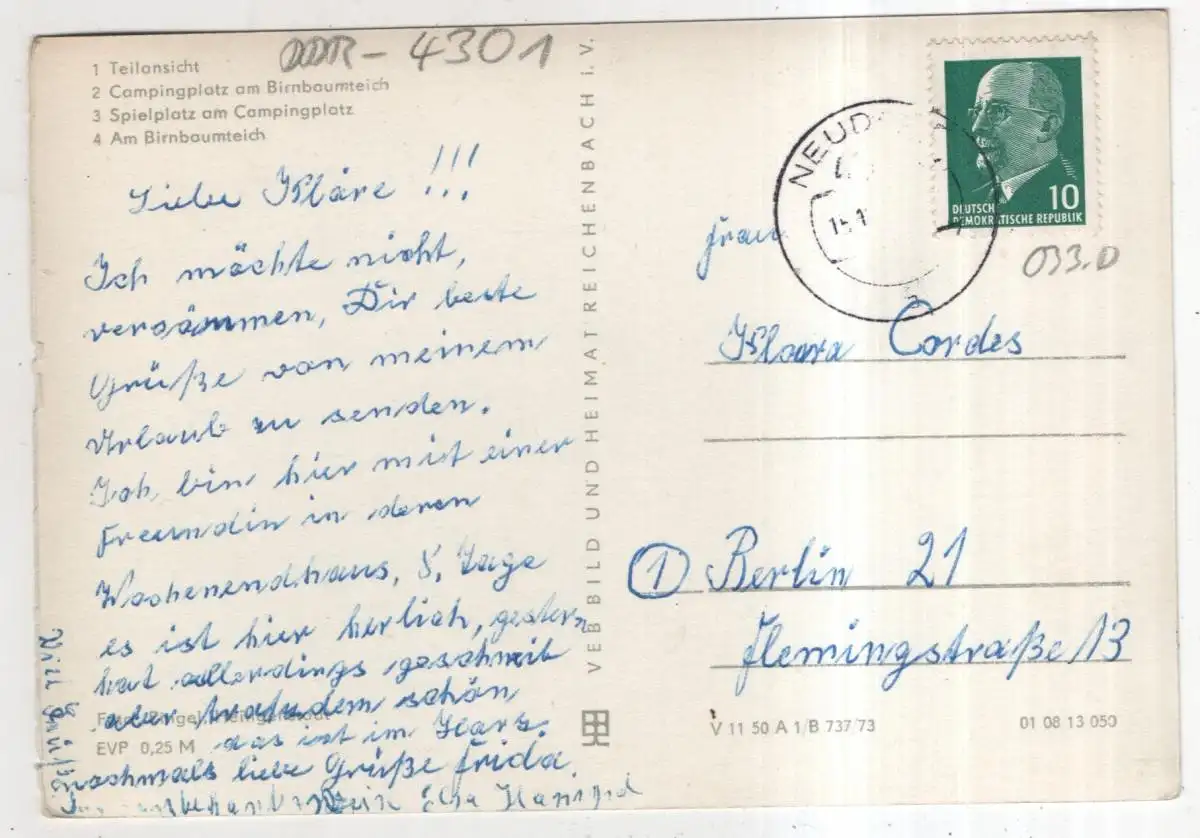 DDR-4301
1 Teilansicht
2 Campingplatz am Birnbaumteich
3 Spielplatz am Campingplatz
4 Am Birnbaumteich
Liebe Kläre !!!
Ich möchte nicht,
versäummen, Dir beste
Grüße von meinem
Urlaub zu senden.
Ich bin hier mit einer
Freundin in deren
Wochenendhaus, 8, Tage
es ist hier herlich, gestern
hat allerdings geschneit
aber trotzdem schön
das ist im Harz.
nochmals liebe Grüße Frida.
Foto:
EVP 0,25 M
VEB BILD UND HEIMAT REICHENBACH i. V.
NEUD
DEUTSCHE
DEMOKRATISCHE REPUBLIK
10
033.D
Frau
Klara Cordes
1 Berlin 21
Flemingstraße 13
V 11 50 A 1/B 737/73
01 08 13 050